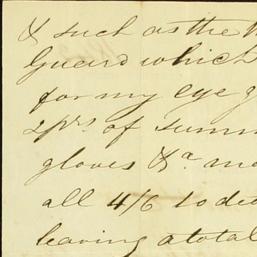 & such as the
Guard which
for my eye g
2prs of summ
gloves &a mo
all 4/6 to de
leaving a total